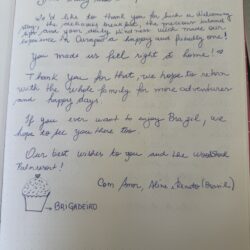 We'd like to thank you for such a welcoming
stay, the delicious breakfast, the precious
tips and your daily kindness which made our
experience in Curaçao a happy and peaceful one!
You made us feel right at home!
Thank you for that, we hope to return
with the whole family for more adventures
and happy days.
If you ever want to enjoy Brazil, we
hope to see you there too.
Our best wishes to you and the
Com Amor, Aline, Renato (Brazil)
→ BRIGADEIRO